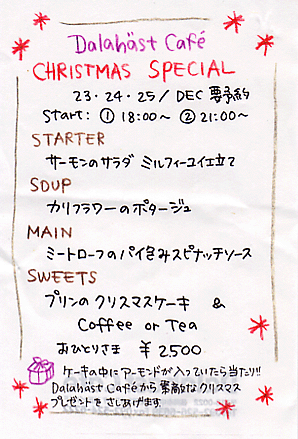 Dalahäst Café
CHRISTMAS SPECIAL
23・24・25/DEC 要予約
Start: ① 18:00～ ② 21:00～
STARTER
サーモンのサラダ ミルフィーユイ立て
SOUP
カリフラワーのポタージュ
MAIN
ミートローフのパイ包みスピナッチソース
SWEETS
プリンのクリスマスケーキ &
Coffee or Tea
おひとりさま ¥2500
ケーキの中にアーモンドが入っていたら当たり!!
Dalahäst Caféから素敵なクリスマス
プレゼントをさしあげます